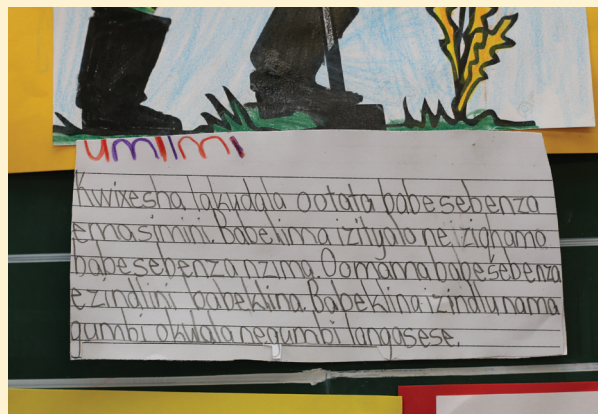 umlimi
Kwixesha lakudala ootata babesebenza
emasimini. Babelima izityalo ne ziqhamo
babesebenza nzima. Oomama babesebenza
ezindlini babeklina. Babeklina izindlu nama
gumbi okulala negumbi langasese.